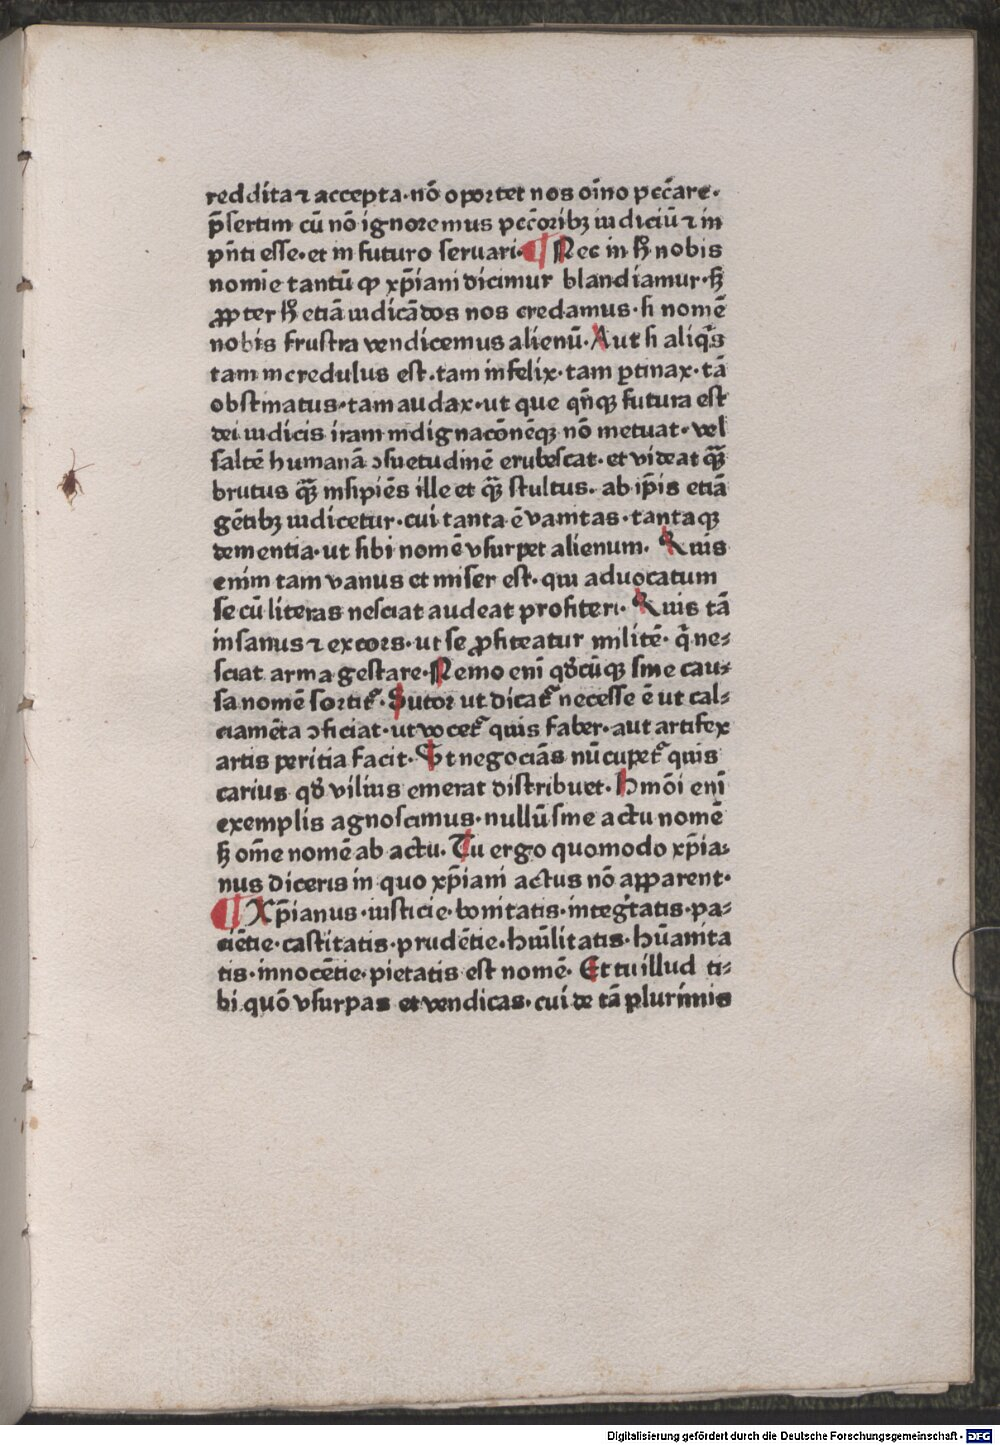 reddita ⁊ accepta· nō oportet nos oīno pccāre·
p̄sertim cū nō ignoremus pccōribꝫ iudiciū ⁊ in
pn̄ti esse· et in futuro seruari· ¶ Nec in hͦ nobis
nomīe tantū ꝙ xp̄iani dicimur blandiamur· sꝫ
ꝓpter hͦ etiā iudicādos nos credamus· si nomē
nobis frustra vendicemus alienū· Aut si aliq̄s
tam incredulus est· tam infelix· tam ꝑtinax· tā
obstinatus· tam audax· ut que qn̄qꝫ futura est
dei iudicis iram indignacōnēqꝫ nō metuat· vel
saltē humanā ꝯsuetudinē erubescat· et videat qͣꝫ
brutus qͣꝫ insipiēs ille et qͣꝫ stultus· ab ip̄is etiā
gētibꝫ iudicetur· cui tanta ē vanitas· tantaqꝫ
dementia· ut sibi nomē vsurpet alienum· Quis
enim tam vanus et miser est· qui aduocatum
se cū literas nesciat audeat profiteri· Quis tā
insanus ⁊ excors· ut se ꝓfiteatur militē· q̄ ne⸗
sciat arma gestare· Nemo enī qd̄cūqꝫ sine cau⸗
sa nomē sortit᷑· Sutor ut dicat᷑ necesse ē ut cal⸗
ciamēta ꝯficiat· ut vocet᷑ quis faber· aut artifex
artis peritia facit· Vt negociās nūcupet᷑ quis
carius qd̄ vilius emerat distribuet· Hmōi enī
exemplis agnoscimus· nullū sine actu nomē
sꝫ om̄e nomē ab actu· Tu ergo quomodo xp̄ia⸗
nus diceris in quo xp̄iani actus nō apparent·
¶ Xp̄ianus· iusticie· bonitatis· integͥtatis· pa⸗
ciētie· castitatis· prudētie· hūilitatis· hūanita
tis· innocētie· pietatis est nomē· Et tu illud ti⸗
bi quō vsurpas et vendicas· cui de tā plurimis
Digitalisierung gefördert durch die Deutsche Forschungsgemeinschaft · DFG